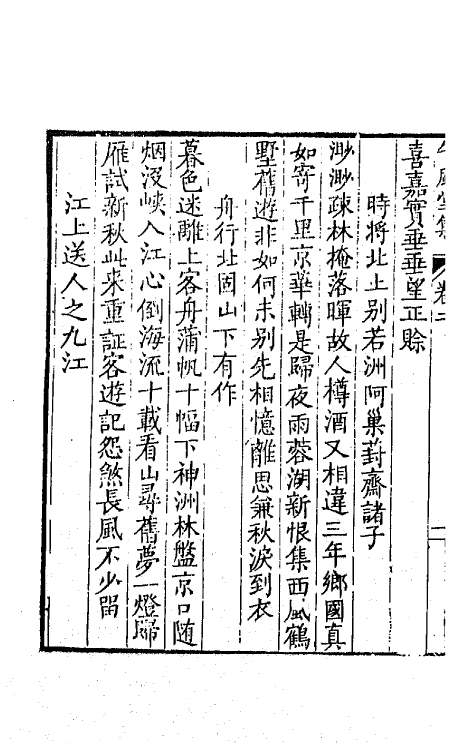 喜嘉實垂垂望正賒
時將北上別若洲阿巢葑齋諸子
渺渺疎林掩落暉故人樽酒又相違三年鄉國真
如寄千里京華轉是歸夜雨蓉湖新恨集西風鶴
墅舊遊非如何未別先相憶離思兼秋淚到衣
舟行北固山下有作
暮色迷離上客舟蒲帆十幅下神洲林盤京口隨
烟沒峽入江心倒海流十載看山尋舊夢一燈歸
雁試新秋此來重証客遊記怨煞長風不少留
江上送人之九江